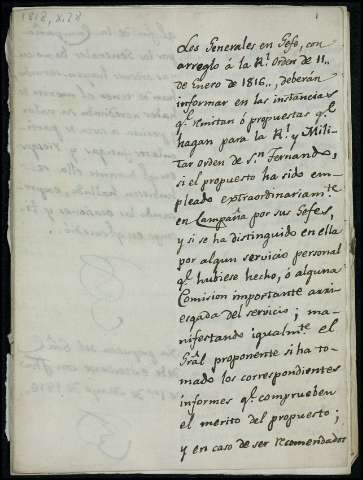 1818, X, 28
1
Los Generales en Gefe, con
arreglo á la Rl. Orden de 11..
de Enero de 1816.., deberán
informar en las instancias
qe. remitan ó propuestas qe.
hagan para la Rl. y Mili-
tar orden de Sn. Fernando,
si el propuesto ha sido em-
pleado extraordinariamte.
en Campaña por sus Gefes,
y si se ha distinguido en ella
por algun servicio personal
qe. hubiese hecho, ó alguna
Comision importante arri-
esgada del servicio; ma-
nifestando igualmte. el
Gral. proponente si ha to-
mado los correspondientes
informes qe. comprueben
el merito del propuesto;
y en caso de ser recomendados